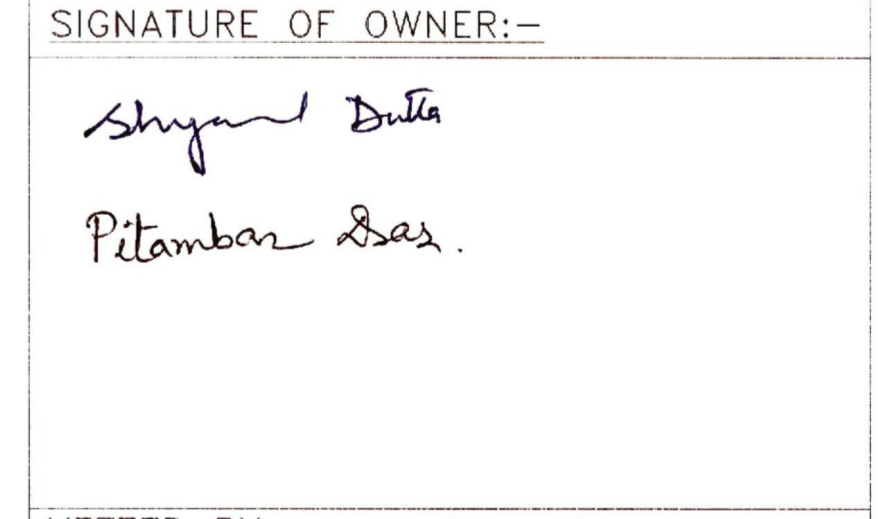 SIGNATURE OF OWNER:-
Shyamal Dutta
Pitambar Das.